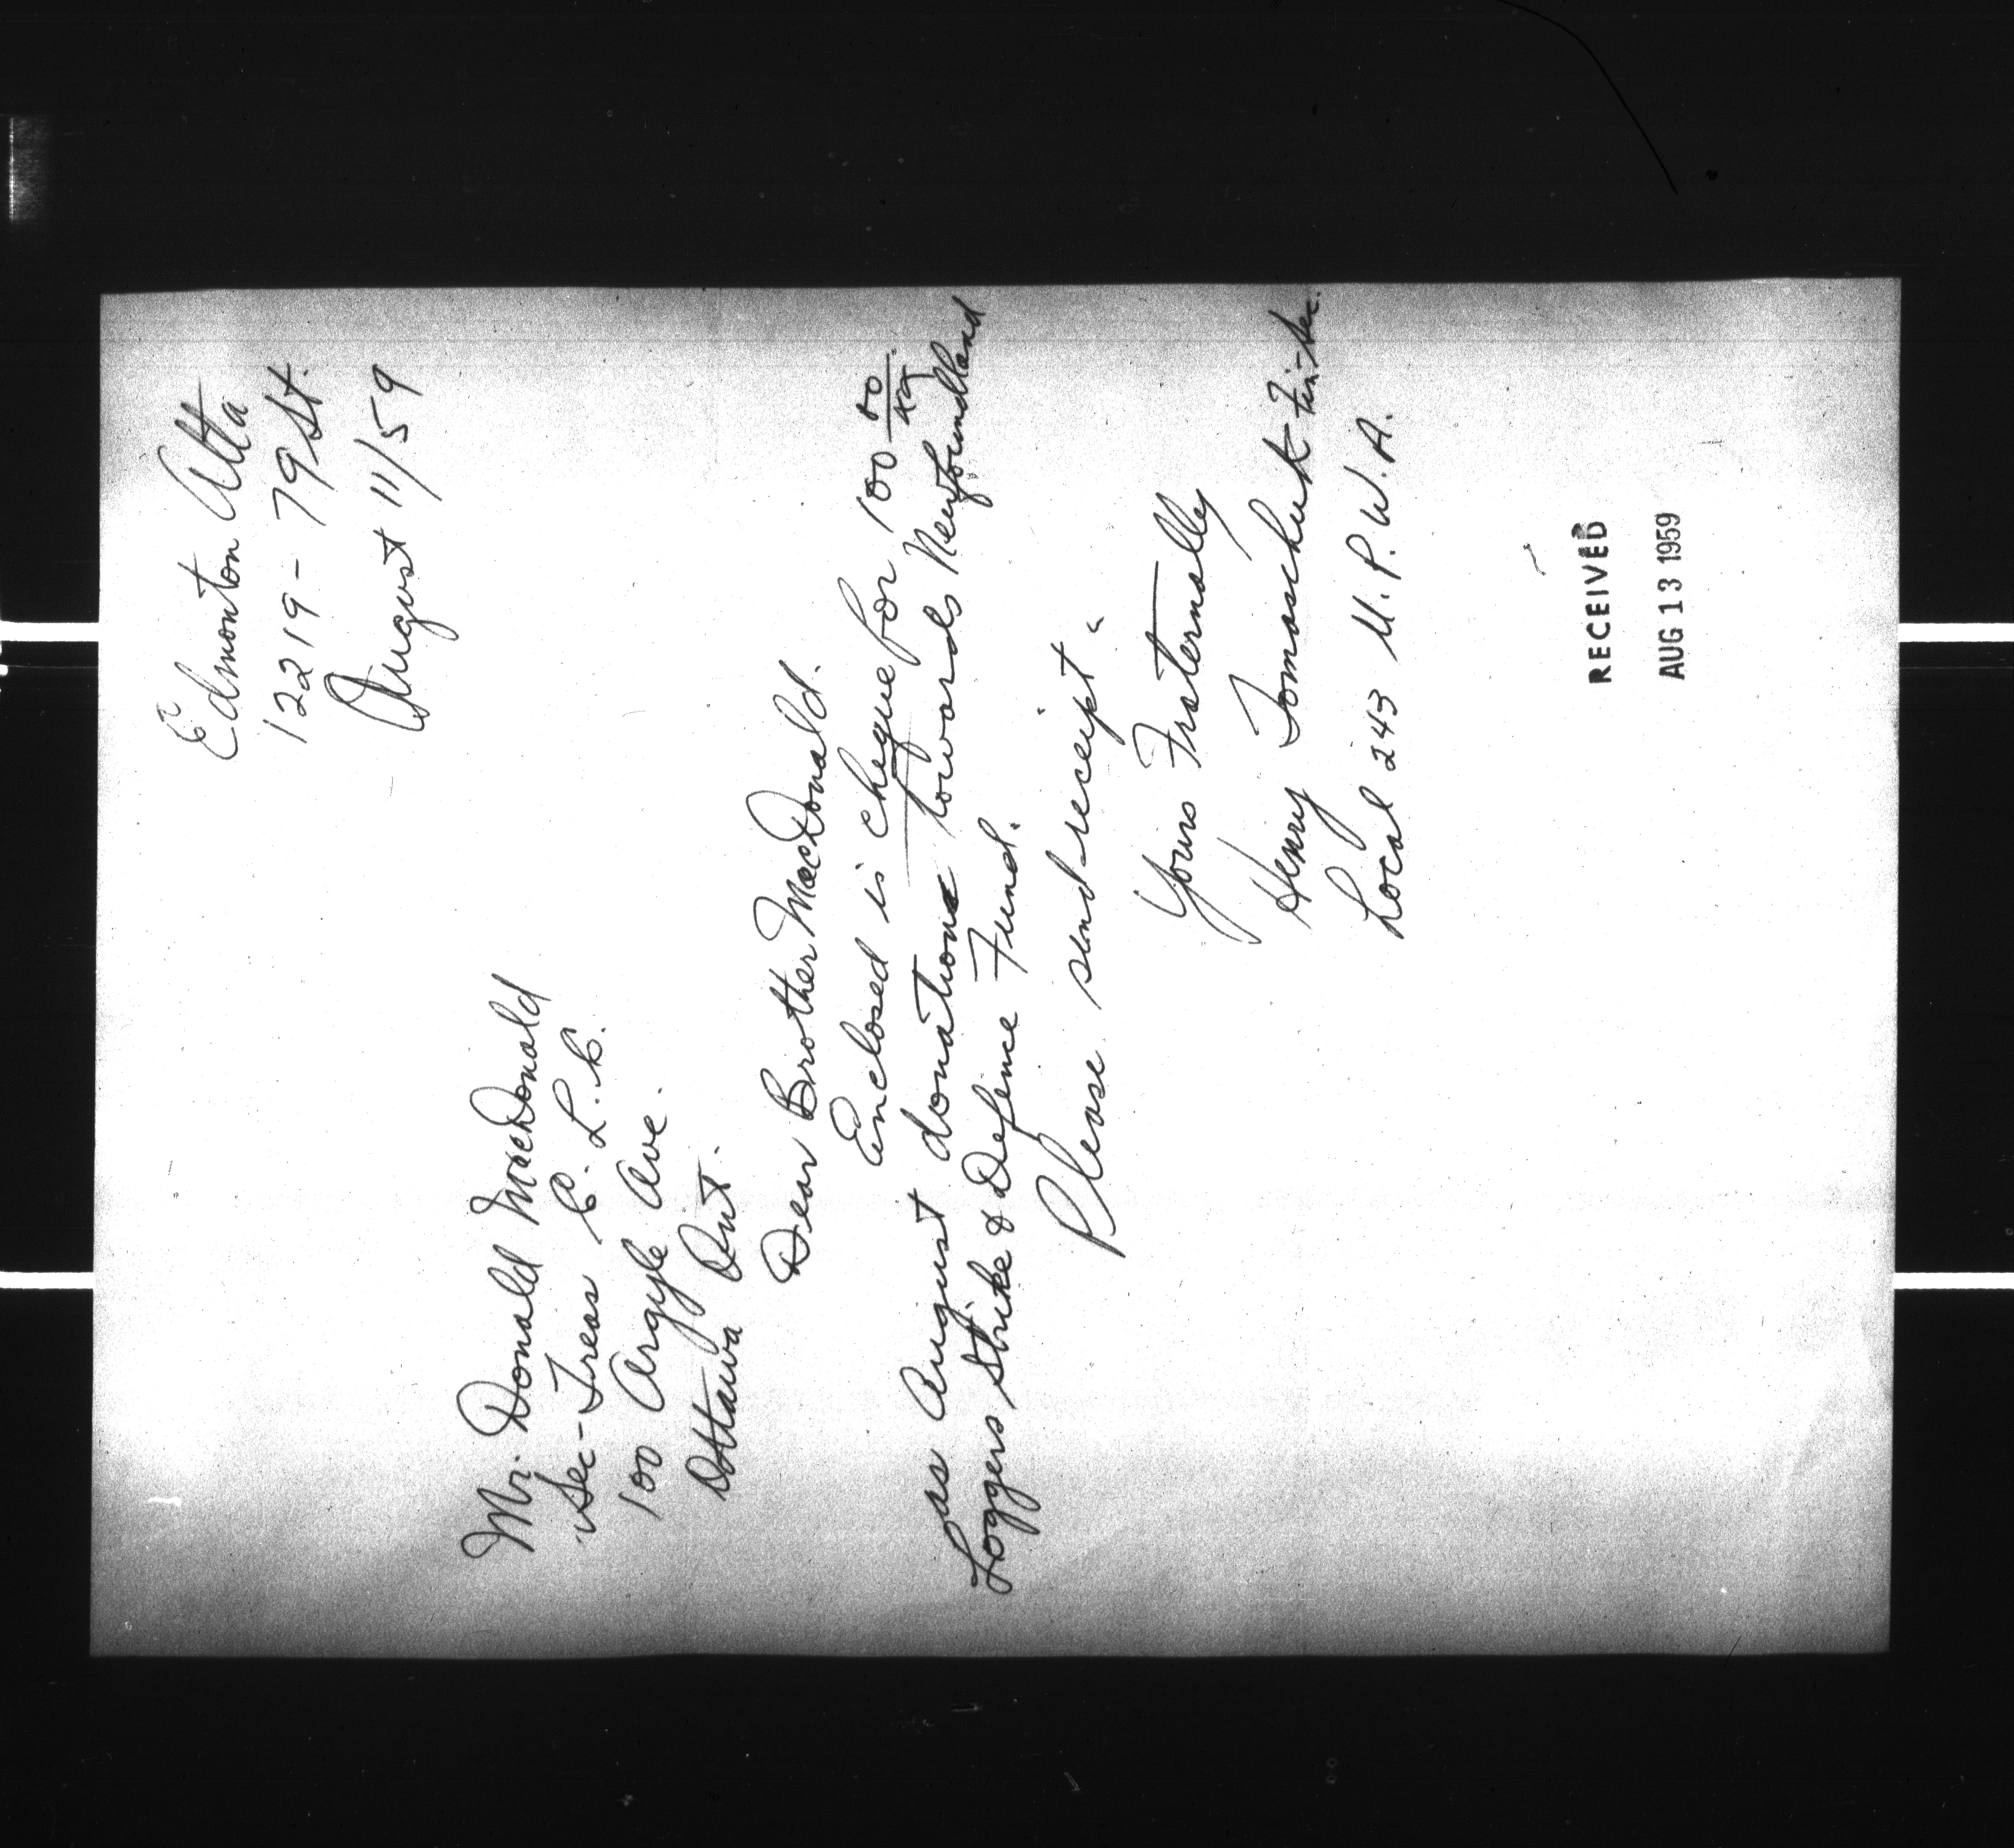 Edmonton Alta
12219 - 79 St.
August 11/59
Mr. Donald MacDonald
Sec-Treas C. L. C.
100 Argyle Ave.
Ottawa Ont.
Dear Brother MacDonald.
Enclosed is cheque for 100 00/xx
as August donation towards Newfoundland
Loggers Strike & Defence Fund.
Please send receipt.
Yours Fraternally
Henry Tomaschuk Fin-Sec.
Local 243 U.P.W.A.
RECEIVED
AUG 13 1959